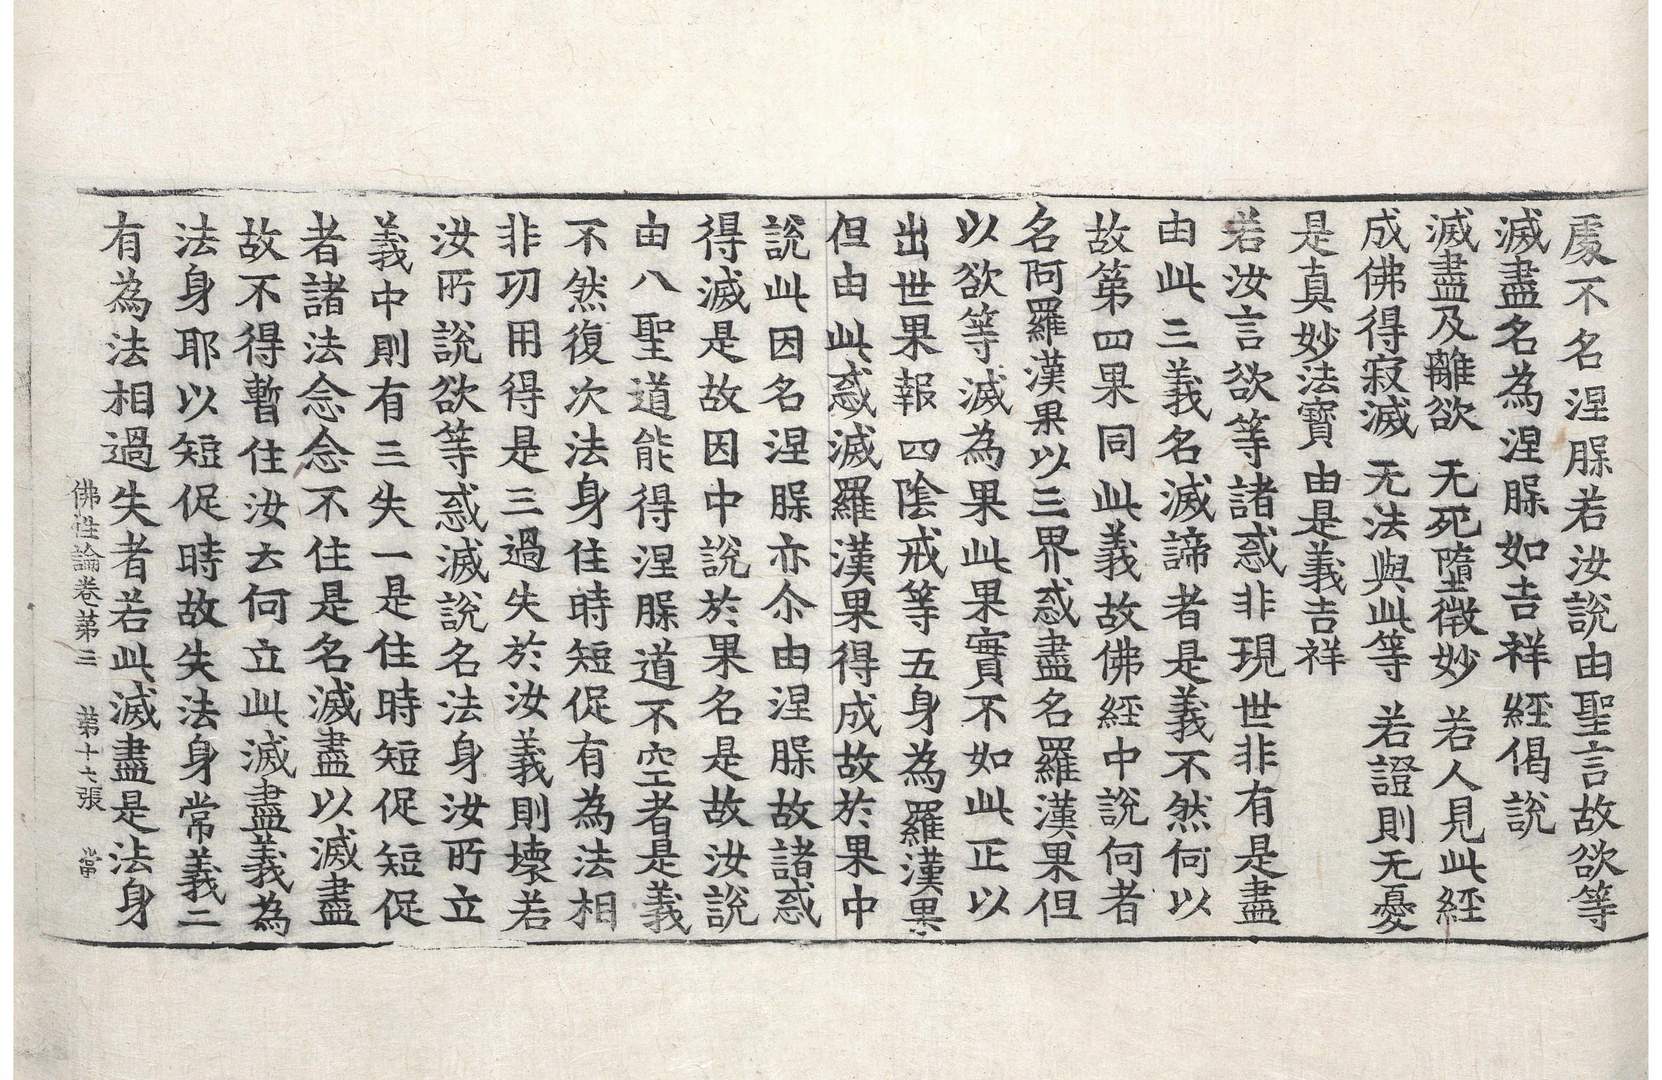 處不名涅槃若汝說由聖言故欲等
滅盡名為涅槃如吉祥經偈說
滅盡及離欲 无死墮徵妙 若人見此經
成佛得寂滅 无法與此等 若證則无憂
是真妙法寶 由是義吉祥
若汝言欲等諸惑非現世非有是盡
由此三義名滅諦者是義不然何以
故第四果同此義故佛經中說何者
名阿羅漢果以三界惑盡名羅漢果但
以欲等滅為果此果實不如此正以
出世果報四陰戒等五身為羅漢果
但由此惑滅羅漢果得成故於果中
說此因名涅槃亦尒由涅槃故諸惑
得滅是故因中說於果名是故汝說
由八聖道能得涅槃道不空者是義
不然復次法身住時短促有為法相
非功用得是三過失於汝義則壞若
汝所說欲等惑滅說名法身汝所立
義中則有三失一是住時短促短促
者諸法念念不住是名滅盡以滅盡
故不得暫住汝云何立此滅盡義為
法身耶以短促時故失法身常義二
有為法相過失者若此滅盡是法身
佛性論卷第三 第十六張 當